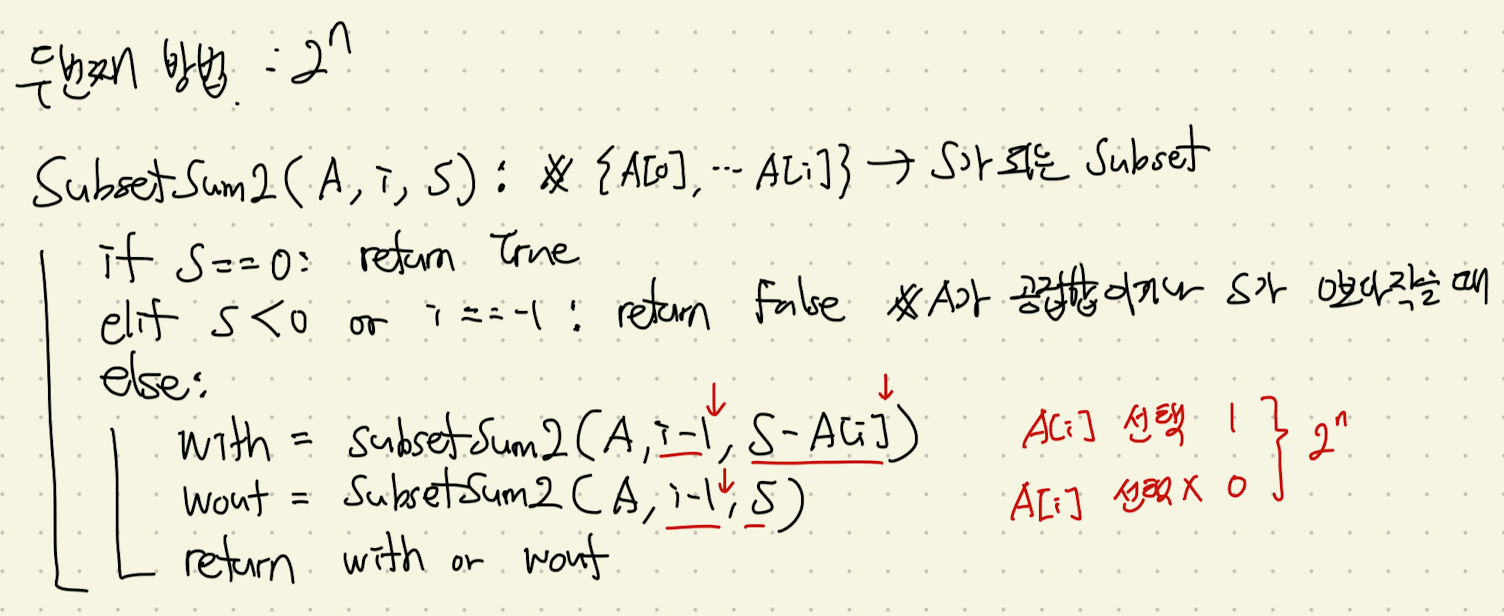 두번째 방법 : 2ⁿ
SubsetSum2(A, i, S) : ※ {A[0], ... A[i]} → S가 되는 Subset
if S==0: return True
elif S<0 or i==-1 : return False ※A가 공집합이거나 S가 0보다작을 때
else:
with = subsetSum2(A, i-1, S-A[i]) A[i] 선택 1
wout = SubsetSum2(A, i-1, S) A[i] 선택X 0 } 2ⁿ
return with or wout